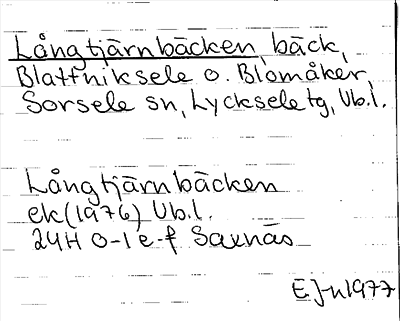 Långtjärnbäcken, bäck,
Blattniksele o. Blomåker,
Sorsele sn, Lycksele tg, Vb.l.
Långtjärnbäcken
ek(1976) Vb.l.
24H 0-1 e-f Saxnäs
EJn1977